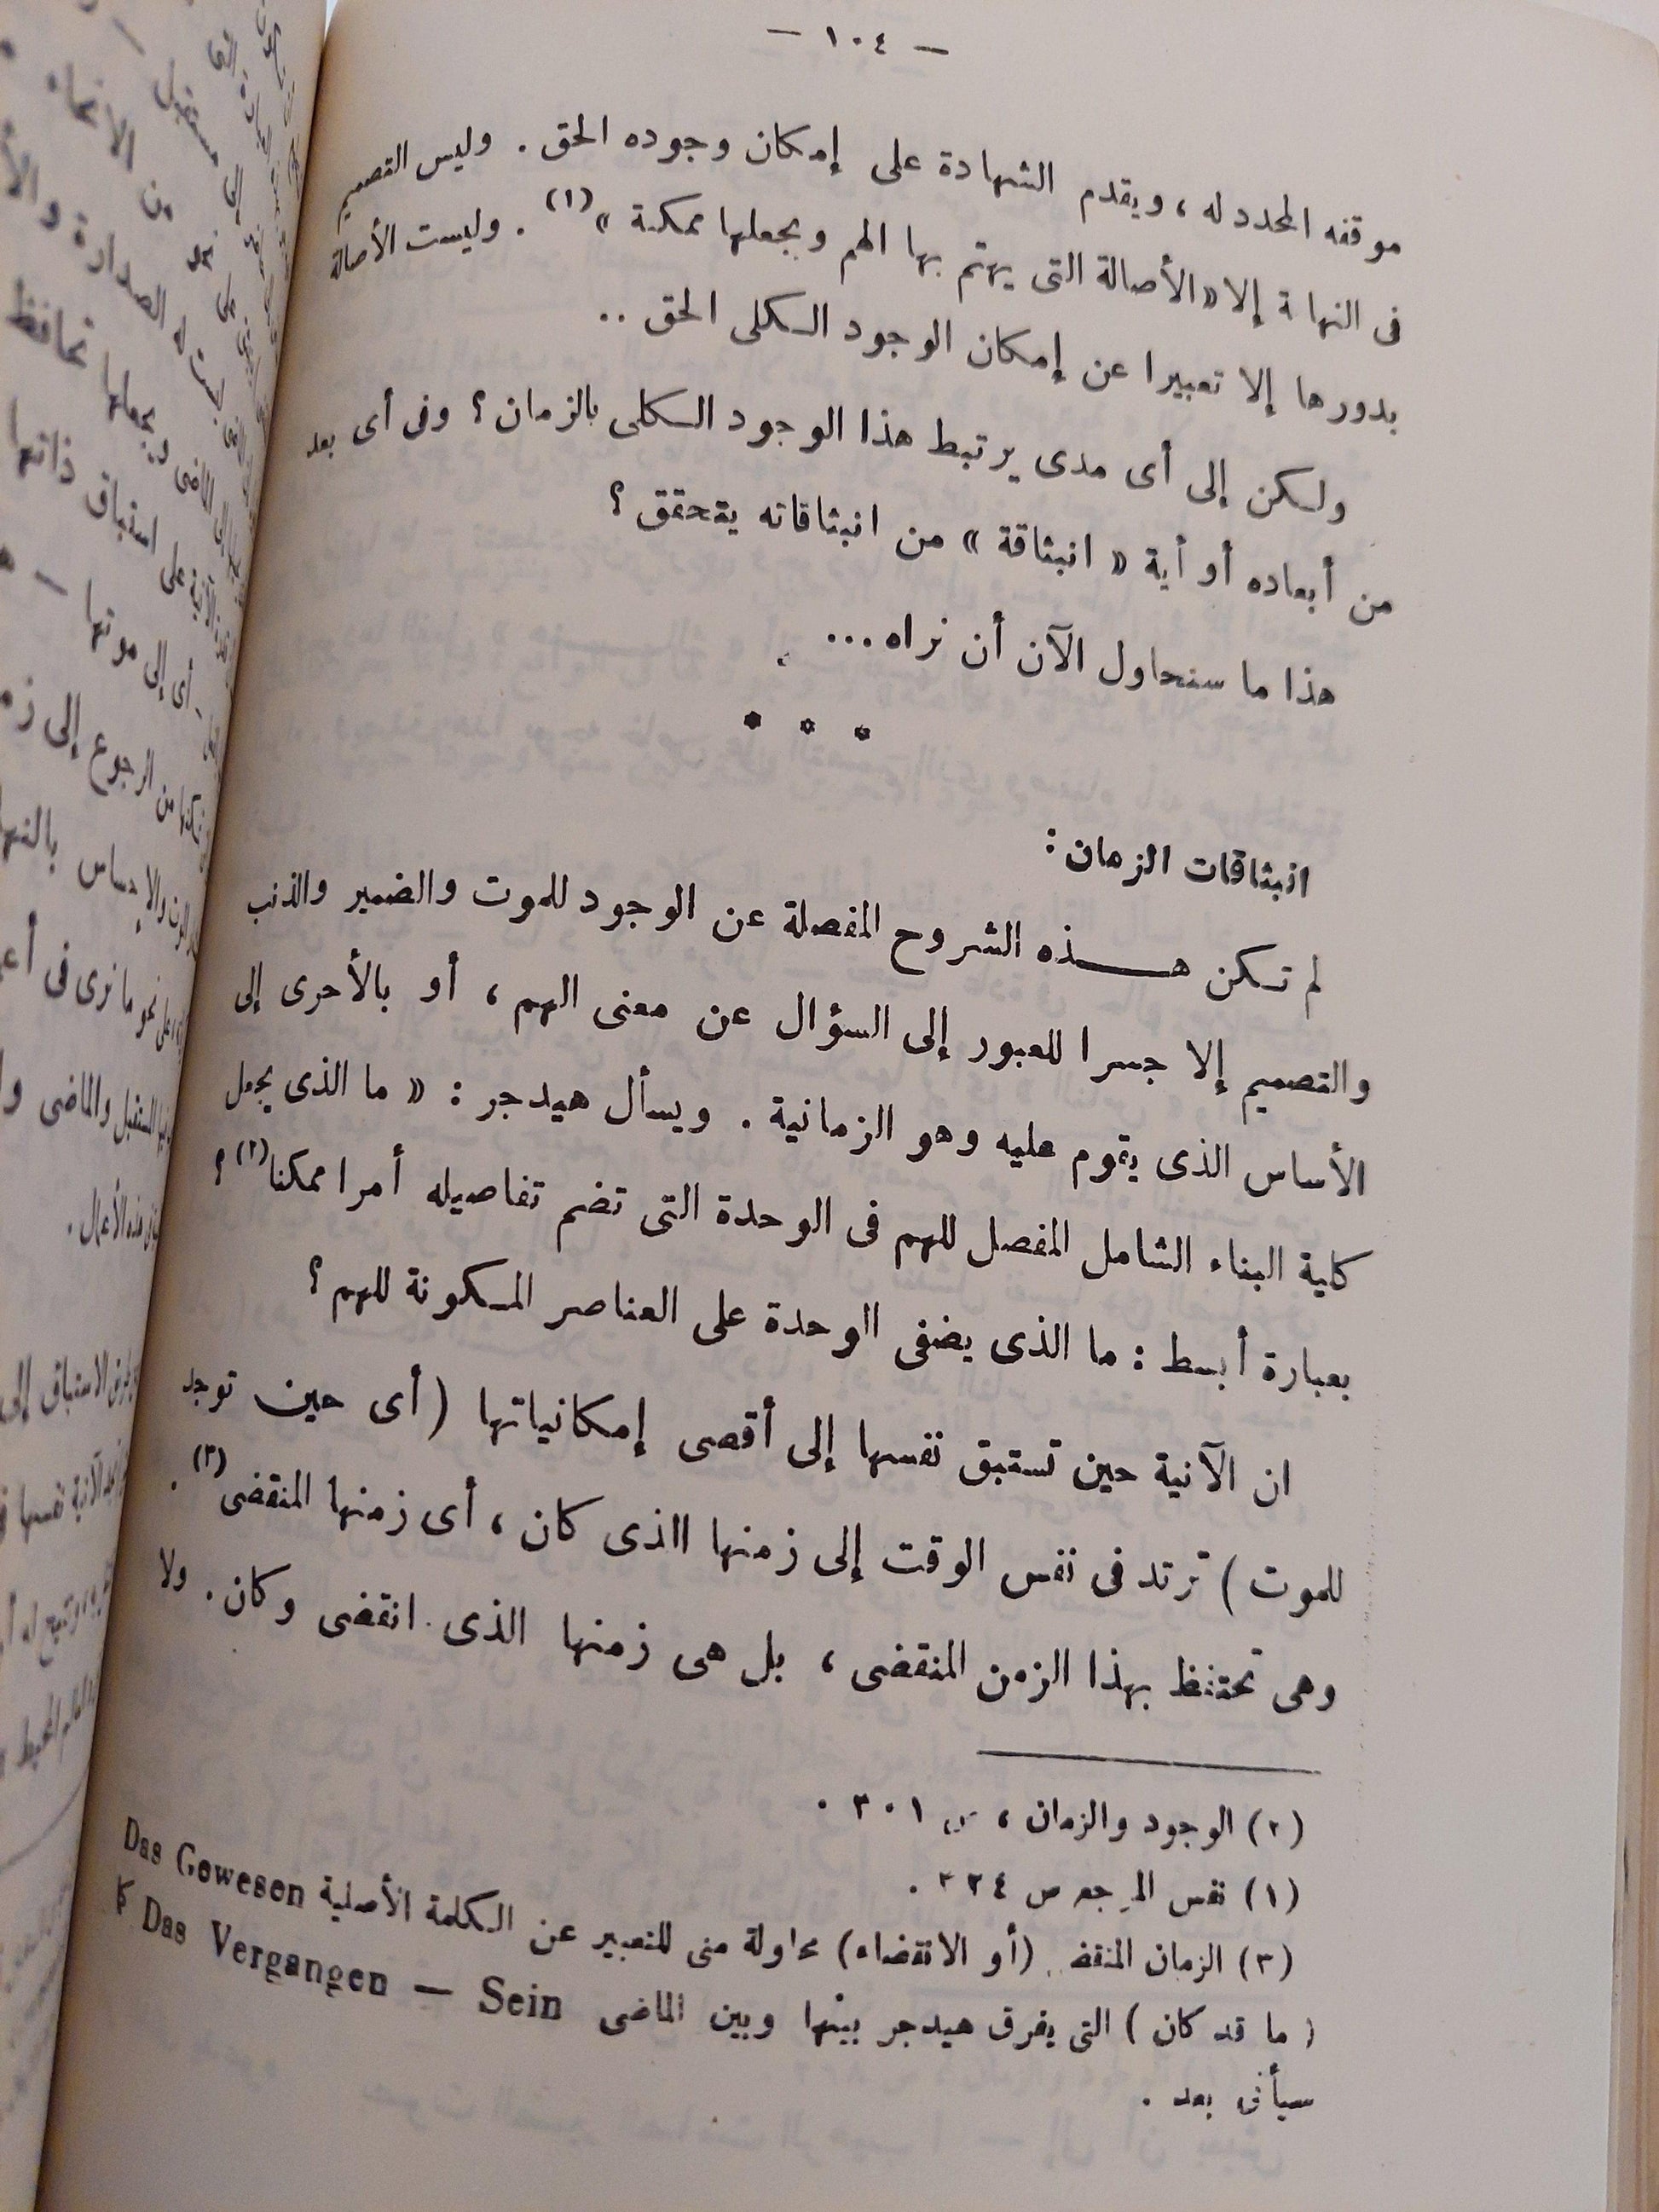 — ١٠٤ —
موقفه المحدد له ، ويقدم الشهادة على إمكان وجوده الحق . وليس التصميم
فى النهاة إلا « الأصالة التى يهتم بها الهم ويجعلها ممكنة » (١) . وليست الأصالة
بدورها إلا تعبيرا عن إمكان الوجود الكلى الحق ..
ولكن إلى أى مدى يرتبط هذا الوجود الكلى بالزمان ؟ وفى أى بعد
من أبعاده أو أية « انبثاقة » من انبثاقاته يتحقق ؟
هذا ما سنحاول الآن أن نراه ...
* * *
انبثاقات الزمان :
لم تكن هــذه الشروح المفصلة عن الوجود للموت والضمير والذنب
والتصميم إلا جسرا للعبور إلى السؤال عن معنى الهم ، أو بالأحرى إلى
الأساس الذى يقوم عليه وهو الزمانية . ويسأل هيدجر : « ما الذى يجعل
كلية البناء الشامل المفصل للهم فى الوحدة التى تضم تفاصيله أمرا ممكنا (٢) ؟
بعبارة أبسط : ما الذى يضفى الوحدة على العناصر المكونة للهم ؟
ان الآنية حين تستبق نفسها إلى أقصى إمكانياتها ( أى حين توجد
للموت ) ترتد فى نفس الوقت إلى زمنها الذى كان ، أى زمنها المنقضى (٣) .
وهى تحتفظ بهذا الزمن المنقضى ، بل هى زمنها الذى انقضى وكان . ولا
(٢) الوجود والزمان ، ص ٣٠١ .
(١) نفس المرجع ص ٣٢٤ .
(٣) الزمان المنقضى (أو الانقضاء) محاولة منى للتعبير عن الكلمة الأصلية Das Gewesen
( ما قد كان ) التى يفرق هيدجر بينها وبين الماضى Das Vergangen — Sein كما
سيأتى بعد .